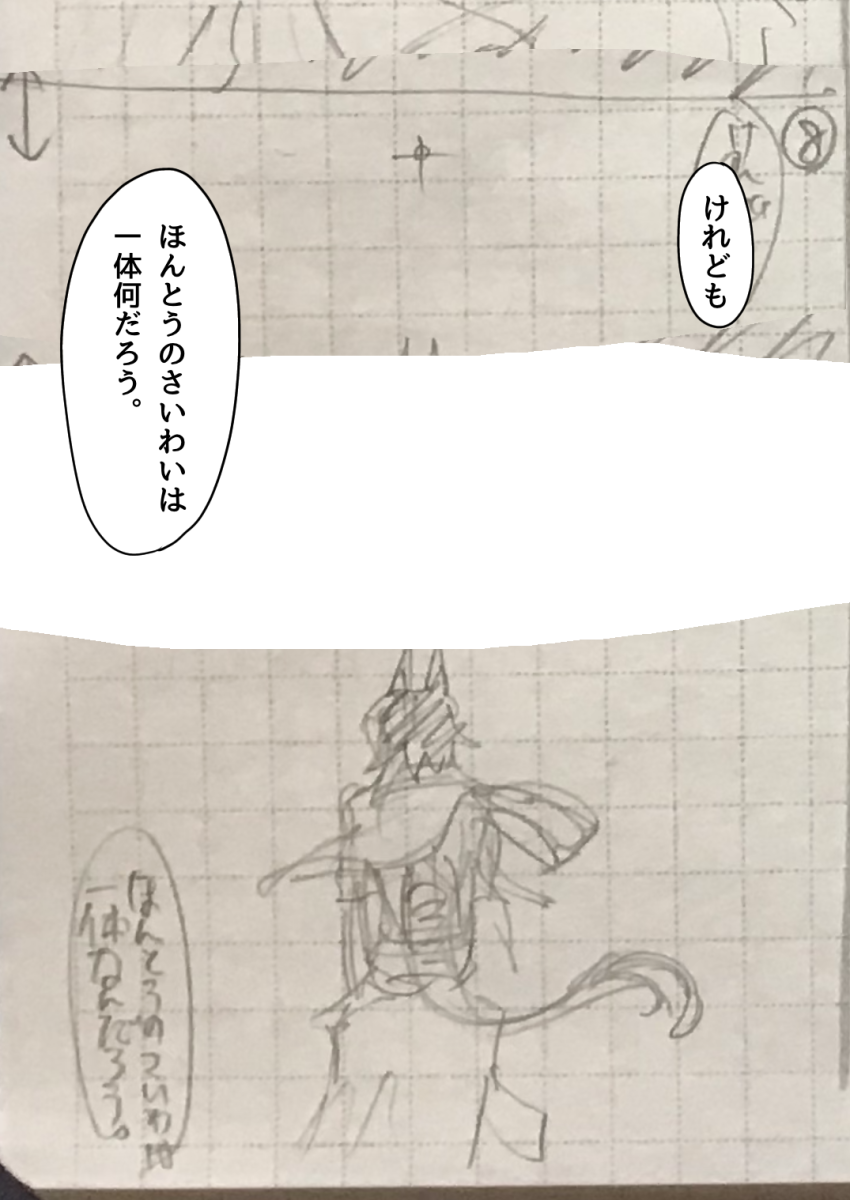 ⑧
けれども
ほんとうのさいわいは
一体何だろう。
ほんとうのさいわいは
一体なんだろう。